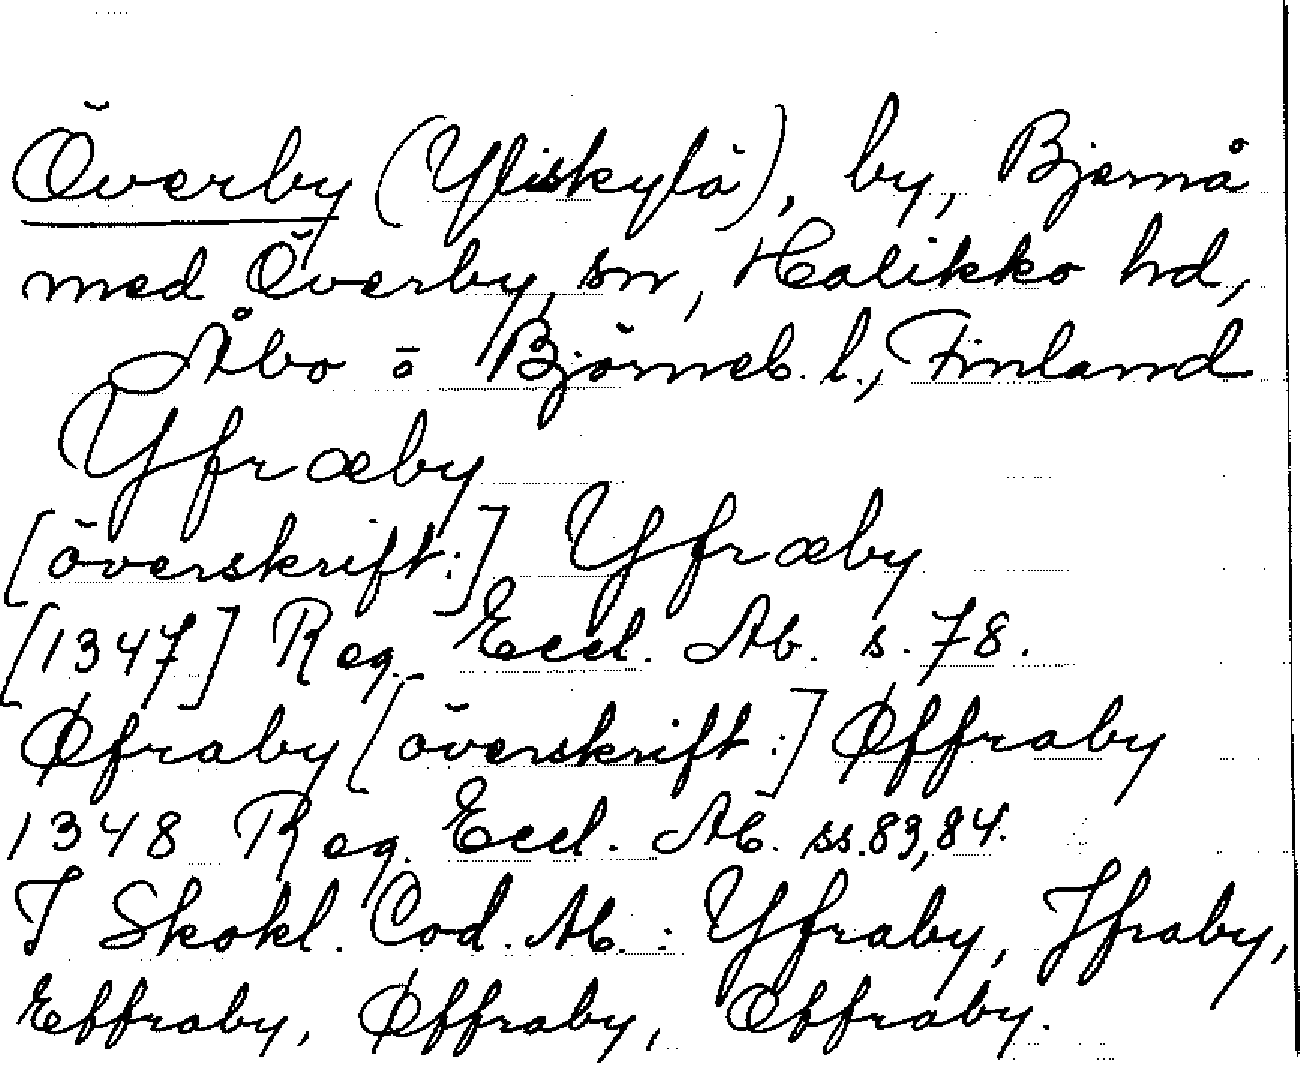 Överby (Yliskylä), by, Bjernå
med Överby, sn, Halikko hd,
Åbo o Björneb. l., Finland
Yfræby
[överskrift:] Yfræby
[1347] Reg. Eccl. Ab. s. 78.
Øfraby [överskrift:] Øffraby
1348 Reg. Eccl. Ab. ss. 83, 84.
I Skokl. Cod. Ab.: Yfraby, Jfraby,
Effraby, Øffraby, Œffraby.